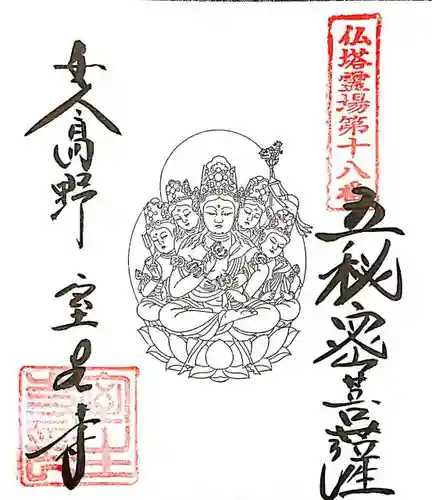 仏塔霊場第十八番
五秘密菩薩
女人高野 室生寺